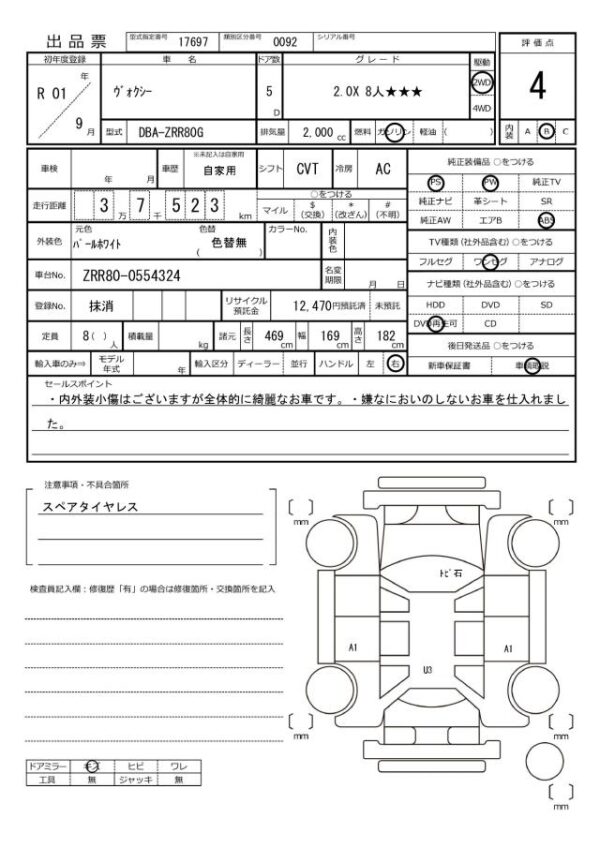 出品票 型式指定番号 17697 類別区分番号 0092 シリアル番号 評価点
初年度登録 車名 ドア数 グレード 駆動
R 01 年 ヴォクシー 5 D 2.0X 8人★★★ 2WD 4
4WD
9 月 型式 DBA-ZRR80G 排気量 2,000 cc 燃料 ガソリン 軽油 ( ) 内装 A B C
車検 年 月 車歴 ※未記入は自家用 自家用 シフト CVT 冷房 AC 純正装備品 ○をつける
PS PW 純正TV
走行距離 3 万 7 千 5 2 3 km ○をつける
マイル $ (交換) * (改ざん) # (不明) 純正ナビ 革シート SR
純正AW エアB ABS
外装色 元色 パールホワイト 色替 色替無 ( ) カラーNo. 内装色 TV種類 (社外品含む) ○をつける
フルセグ ワンセグ アナログ
車台No. ZRR80-0554324 名変期限 月 日 ナビ種類 (社外品含む) ○をつける
登録No. 抹消 リサイクル預託金 12,470円預託済 未預託 HDD DVD SD
DVD再生可 CD
定員 8( ) 人 積載量 kg 諸元 長さ 469 cm 幅 169 cm 高さ 182 cm 後日発送品 ○をつける
輸入車のみ⇒ モデル年式 年 輸入区分 ディーラー 並行 ハンドル 左 右 新車保証書 車輌取説
セールスポイント
・内外装小傷はございますが全体的に綺麗なお車です。・嫌なにおいのしないお車を仕入れまし
た。
注意事項・不具合箇所
スペアタイヤレス
検査員記入欄：修復歴「有」の場合は修復箇所・交換箇所を記入
[ ] mm [ ] mm
トビ石
A1 A1
U3
[ ] mm [ ] mm
ドアミラー キズ ヒビ ワレ
工具 無 ジャッキ 無
[ ] mm